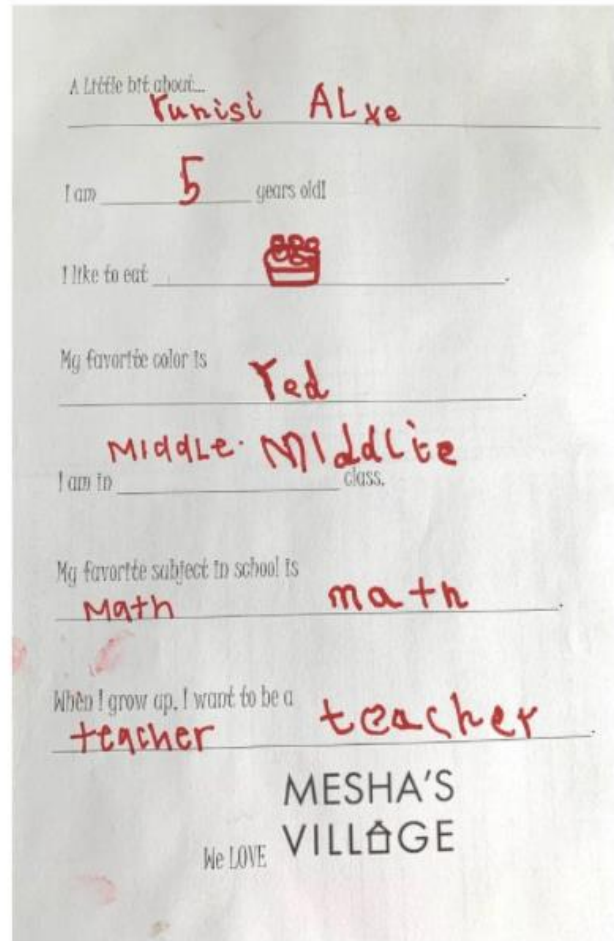 A Little bit about...
Yunisi ALxe
I am 5 years old!
I like to eat .
My favorite color is
Yed .
MIddLe. MIddLite
I am in class.
My favorite subject in school is
Math math .
When I grow up, I want to be a
teacher teacher .
MESHA'S
We LOVE VILLAGE